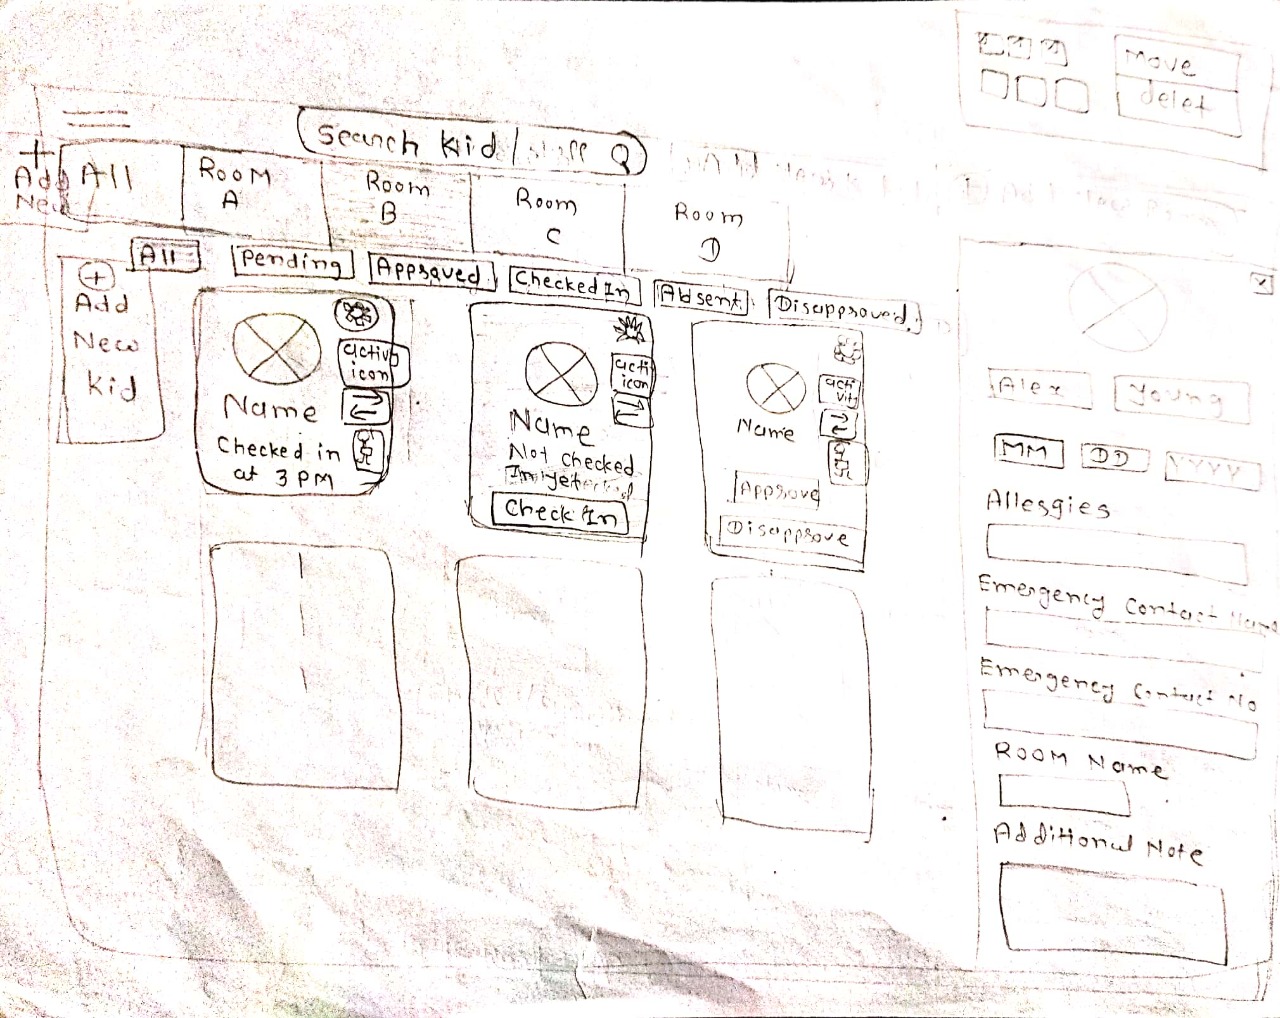 Move
delet
Search Kid /
+
Add
New
All
Room
A
Room
B
Room
C
Room
D
All
Pending
Approved
Checked In
Absent
Disapproved
+
Add
New
Kid
active
icon
Name
Checked in
at 3 PM
acti
icon
Name
Not checked
In yet
Check In
acti
vity
Name
Approve
Disapprove
X
Alex
Young
MM
DD
YYYY
Allergies
Emergency Contact Name
Emergency Contact No
Room Name
Additional Note